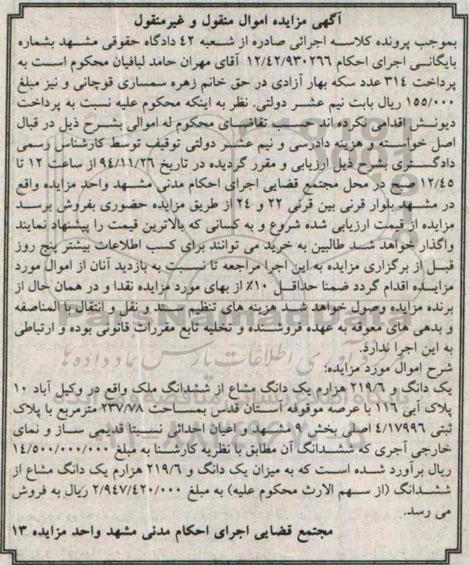 آگهی مزایده اموال منقول و غیرمنقول
بموجب پرونده کلاسه اجرائی صادره از شعبه ۴۲ دادگاه حقوقی مشهد بشماره
بایگانی اجرای احکام ۱۲/۴۲/۹۳۰۲۶۶ آقای مهران حامد لبافیان محکوم است به
پرداخت ۳۱۴ عدد سکه بهار آزادی در حق خانم زهره سمساری قوچانی و نیز مبلغ
۱۵۵/۰۰۰ ریال بابت نیم عشر دولتی. نظر به اینکه محکوم علیه نسبت به پرداخت
دیونش اقدامی نکرده اند حسب تقاضای محکوم له اموالی بشرح ذیل در قبال
اصل خواسته و هزینه دادرسی و نیم عشر دولتی توقیف توسط کارشناس رسمی
دادگستری بشرح ذیل ارزیابی و مقرر گردیده در تاریخ ۹۴/۱۱/۲۶ از ساعت ۱۲ تا
۱۲/۴۵ صبح در محل مجتمع قضایی اجرای احکام مدنی مشهد واحد مزایده واقع
در مشهد بلوار قرنی بین قرنی ۲۲ و ۲۴ از طریق مزایده حضوری بفروش برسد
مزایده از قیمت ارزیابی شده شروع و به کسانی که بالاترین قیمت را پیشنهاد نمایند
واگذار خواهد شد طالبین به خرید می توانند برای کسب اطلاعات بیشتر پنج روز
قبل از برگزاری مزایده به این اجرا مراجعه تا نسبت به بازدید آنان از اموال مورد
مزایده اقدام گردد ضمنا حداقل ۱۰٪ از بهای مورد مزایده نقدا و در همان حال از
برنده مزایده وصول خواهد شد. هزینه های تنظیم سند و نقل و انتقال بالمناصفه
و بدهی های معوقه به عهده فروشنده و تخلیه تابع مقررات قانونی بوده و ارتباطی
به این اجرا ندارد.
شرح اموال مورد مزایده:
یک دانگ و ۲۱۹/۶ هزارم یک دانگ مشاع از ششدانگ ملک واقع در وکیل آباد ۱۰
پلاک آبی ۱۱۶ با عرصه موقوفه آستان قدس بمساحت ۲۳۷/۷۸ مترمربع با پلاک
ثبتی ۴/۱۷۹۹۶ اصلی بخش ۱۰ مشهد و اعیان احداثی نسبتا قدیمی ساز و نمای
خارجی آجری که ششدانگ آن مطابق با نظریه کارشنا به مبلغ ۱۴/۵۰۰/۰۰۰/۰۰۰
ریال برآورد شده است که به میزان یک دانگ و ۲۱۹/۶ هزارم یک دانگ مشاع از
ششدانگ (از سهم الارث محکوم علیه) به مبلغ ۲/۹۴۷/۴۲۰/۰۰۰ ریال به فروش
می رسد.
مجتمع قضائی اجرای احکام مدنی مشهد واحد مزایده ۱۳